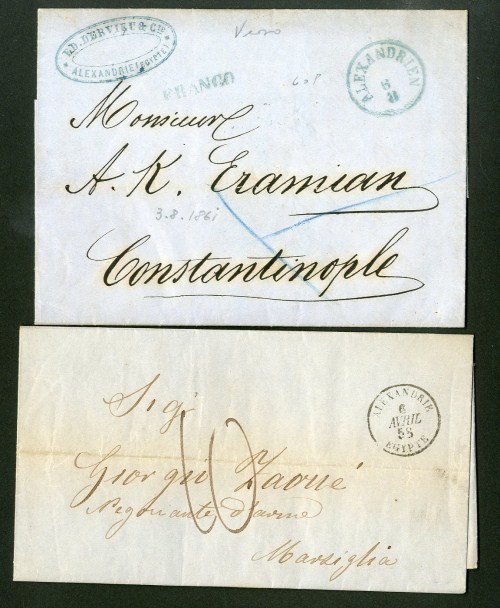 ED. DERVIEU & Cie
ALEXANDRIE (EGYPTE)
Verso
FRANCO
ALEXANDRIEN
6
8
Monsieur
A. K. Eramian
3.8.1861
Constantinople
ALEXANDRIE
6
AVRIL
58
EGYPTE
Sig.
10
Giorgio Zaoué
Negoziante d'arme
Marsiglia